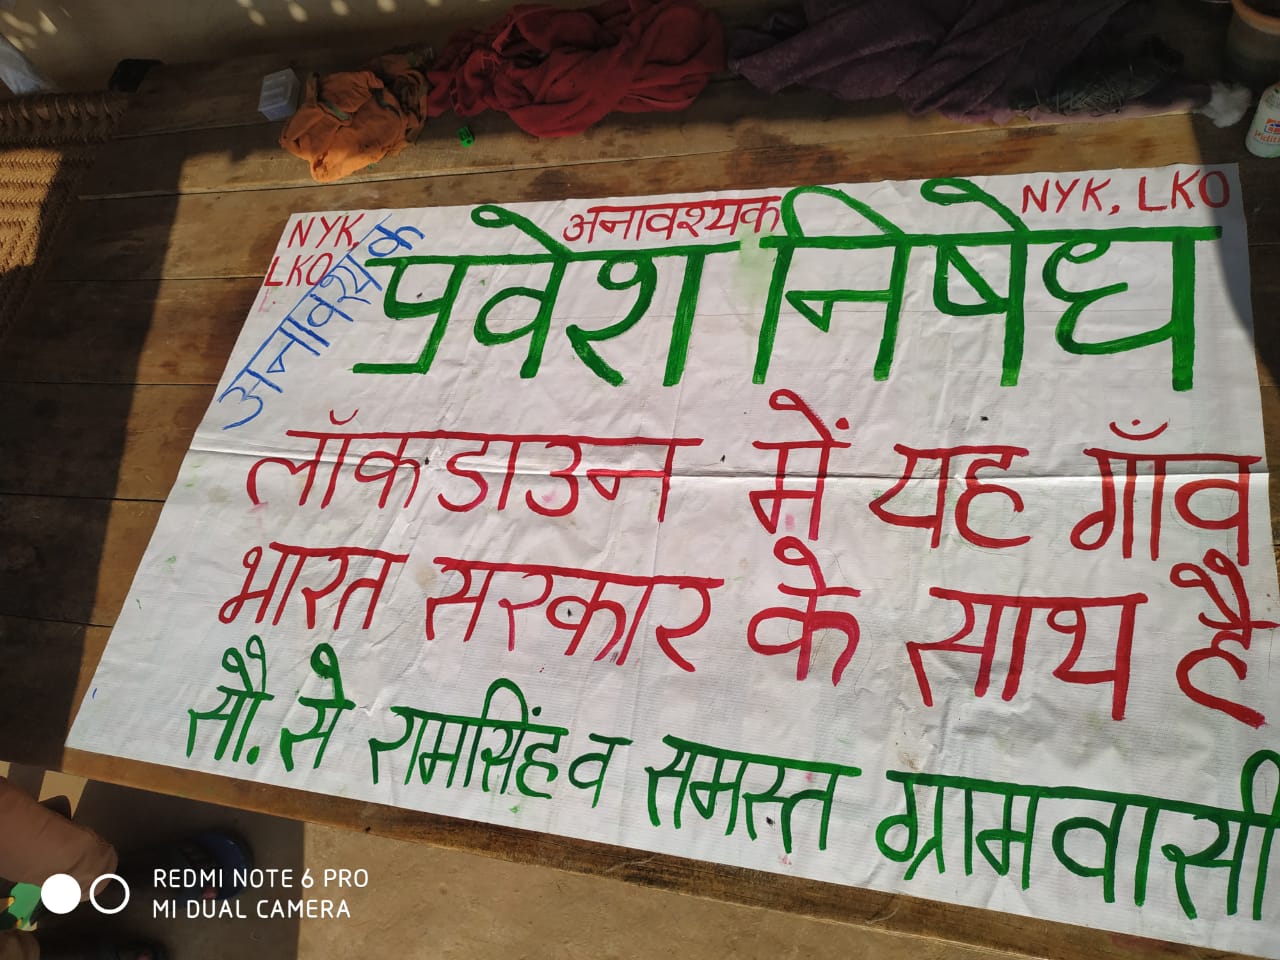 NYK, LKO
अनावश्यक
अनावश्यक
NYK, LKO
प्रवेश निषेध
लॉकडाउन में यह गाँव
भारत सरकार के साथ है
सौ. से रामसिंह व समस्त ग्रामवासी
REDMI NOTE 6 PRO
MI DUAL CAMERA